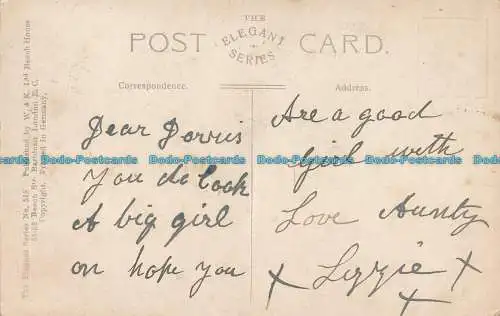 THE
ELEGANT
SERIES
POST CARD.
Correspondence.
Address.
Dear Dorris
You do look
A big girl
on hope you
Are a good
girl with
Love Aunty
Lizzie
x x x
The Elegant Series No. 515 Published by W. & K. Ltd Beech House
Beech St. Barbican London E.C.
Copyright. Printed in Germany.
Dodo-Postcards Dodo-Postcards Dodo-Postcards Dodo-Postcards Dodo-Postcards Dodo-Postcards